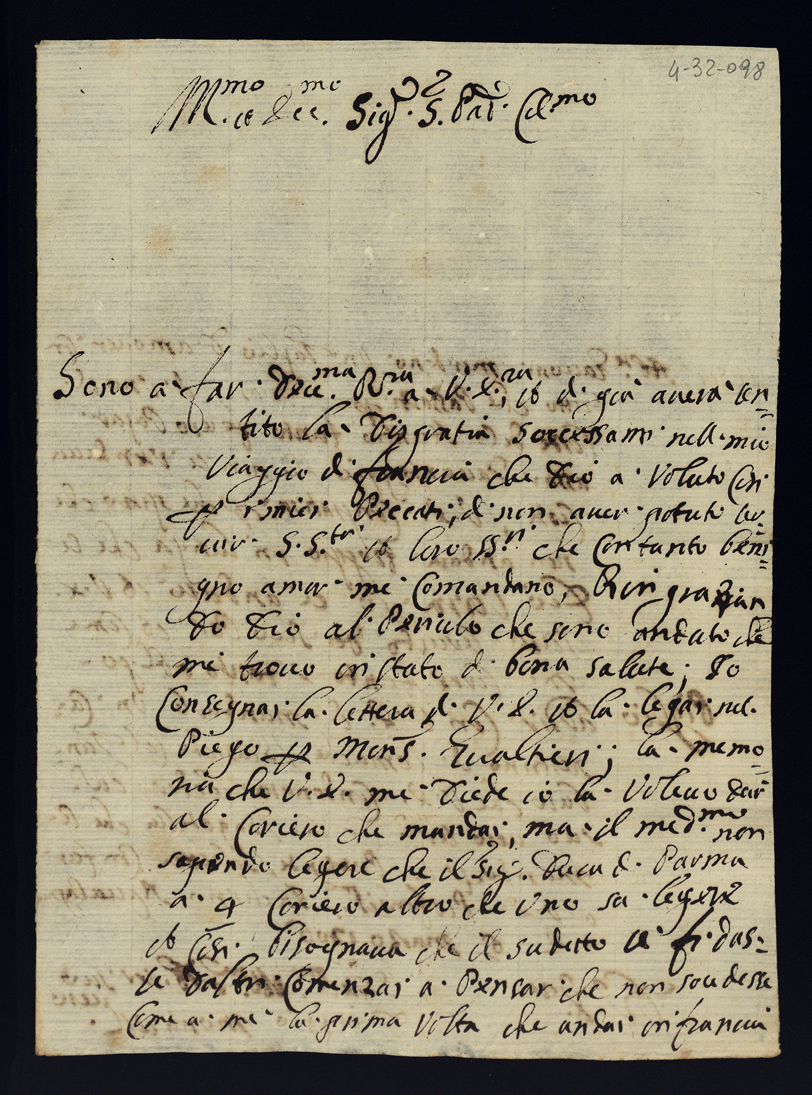 4-32-098
Ill.mo et Ecc.mo Sig.r S. Pad. Col.mo
Sono a far Umm.ma R.za a V.E.za, et di già averà sen=
tito la disgratia soccessami nell mio
viaggio di francia che Dio a voluto Così
p i miei Peccati, di non aver potuto ser=
uir S.S.tà et loro SS.ri che Contanto beni=
gno amor me Comandano, Ringrazian
do Dio al Periculo che sono andato che
me trouo in stato di bona salute; Io
Consegnai la lettera di V.E. et la legai nel
Piego p Mons. Gualtieri; la memo=
ria che V.E. me diede io la Voleuo dar
al Coriero che mandai, ma il med.mo non
sapendo legere che il Sig.r Duca di Parma
a 4 Corieri altro che Uno sa legere
et Così bisognaua che il sudetto se fidas=
se d'altri Comenzai a Pensar che non soudesse
Come a me la prima Volta che andai in francia